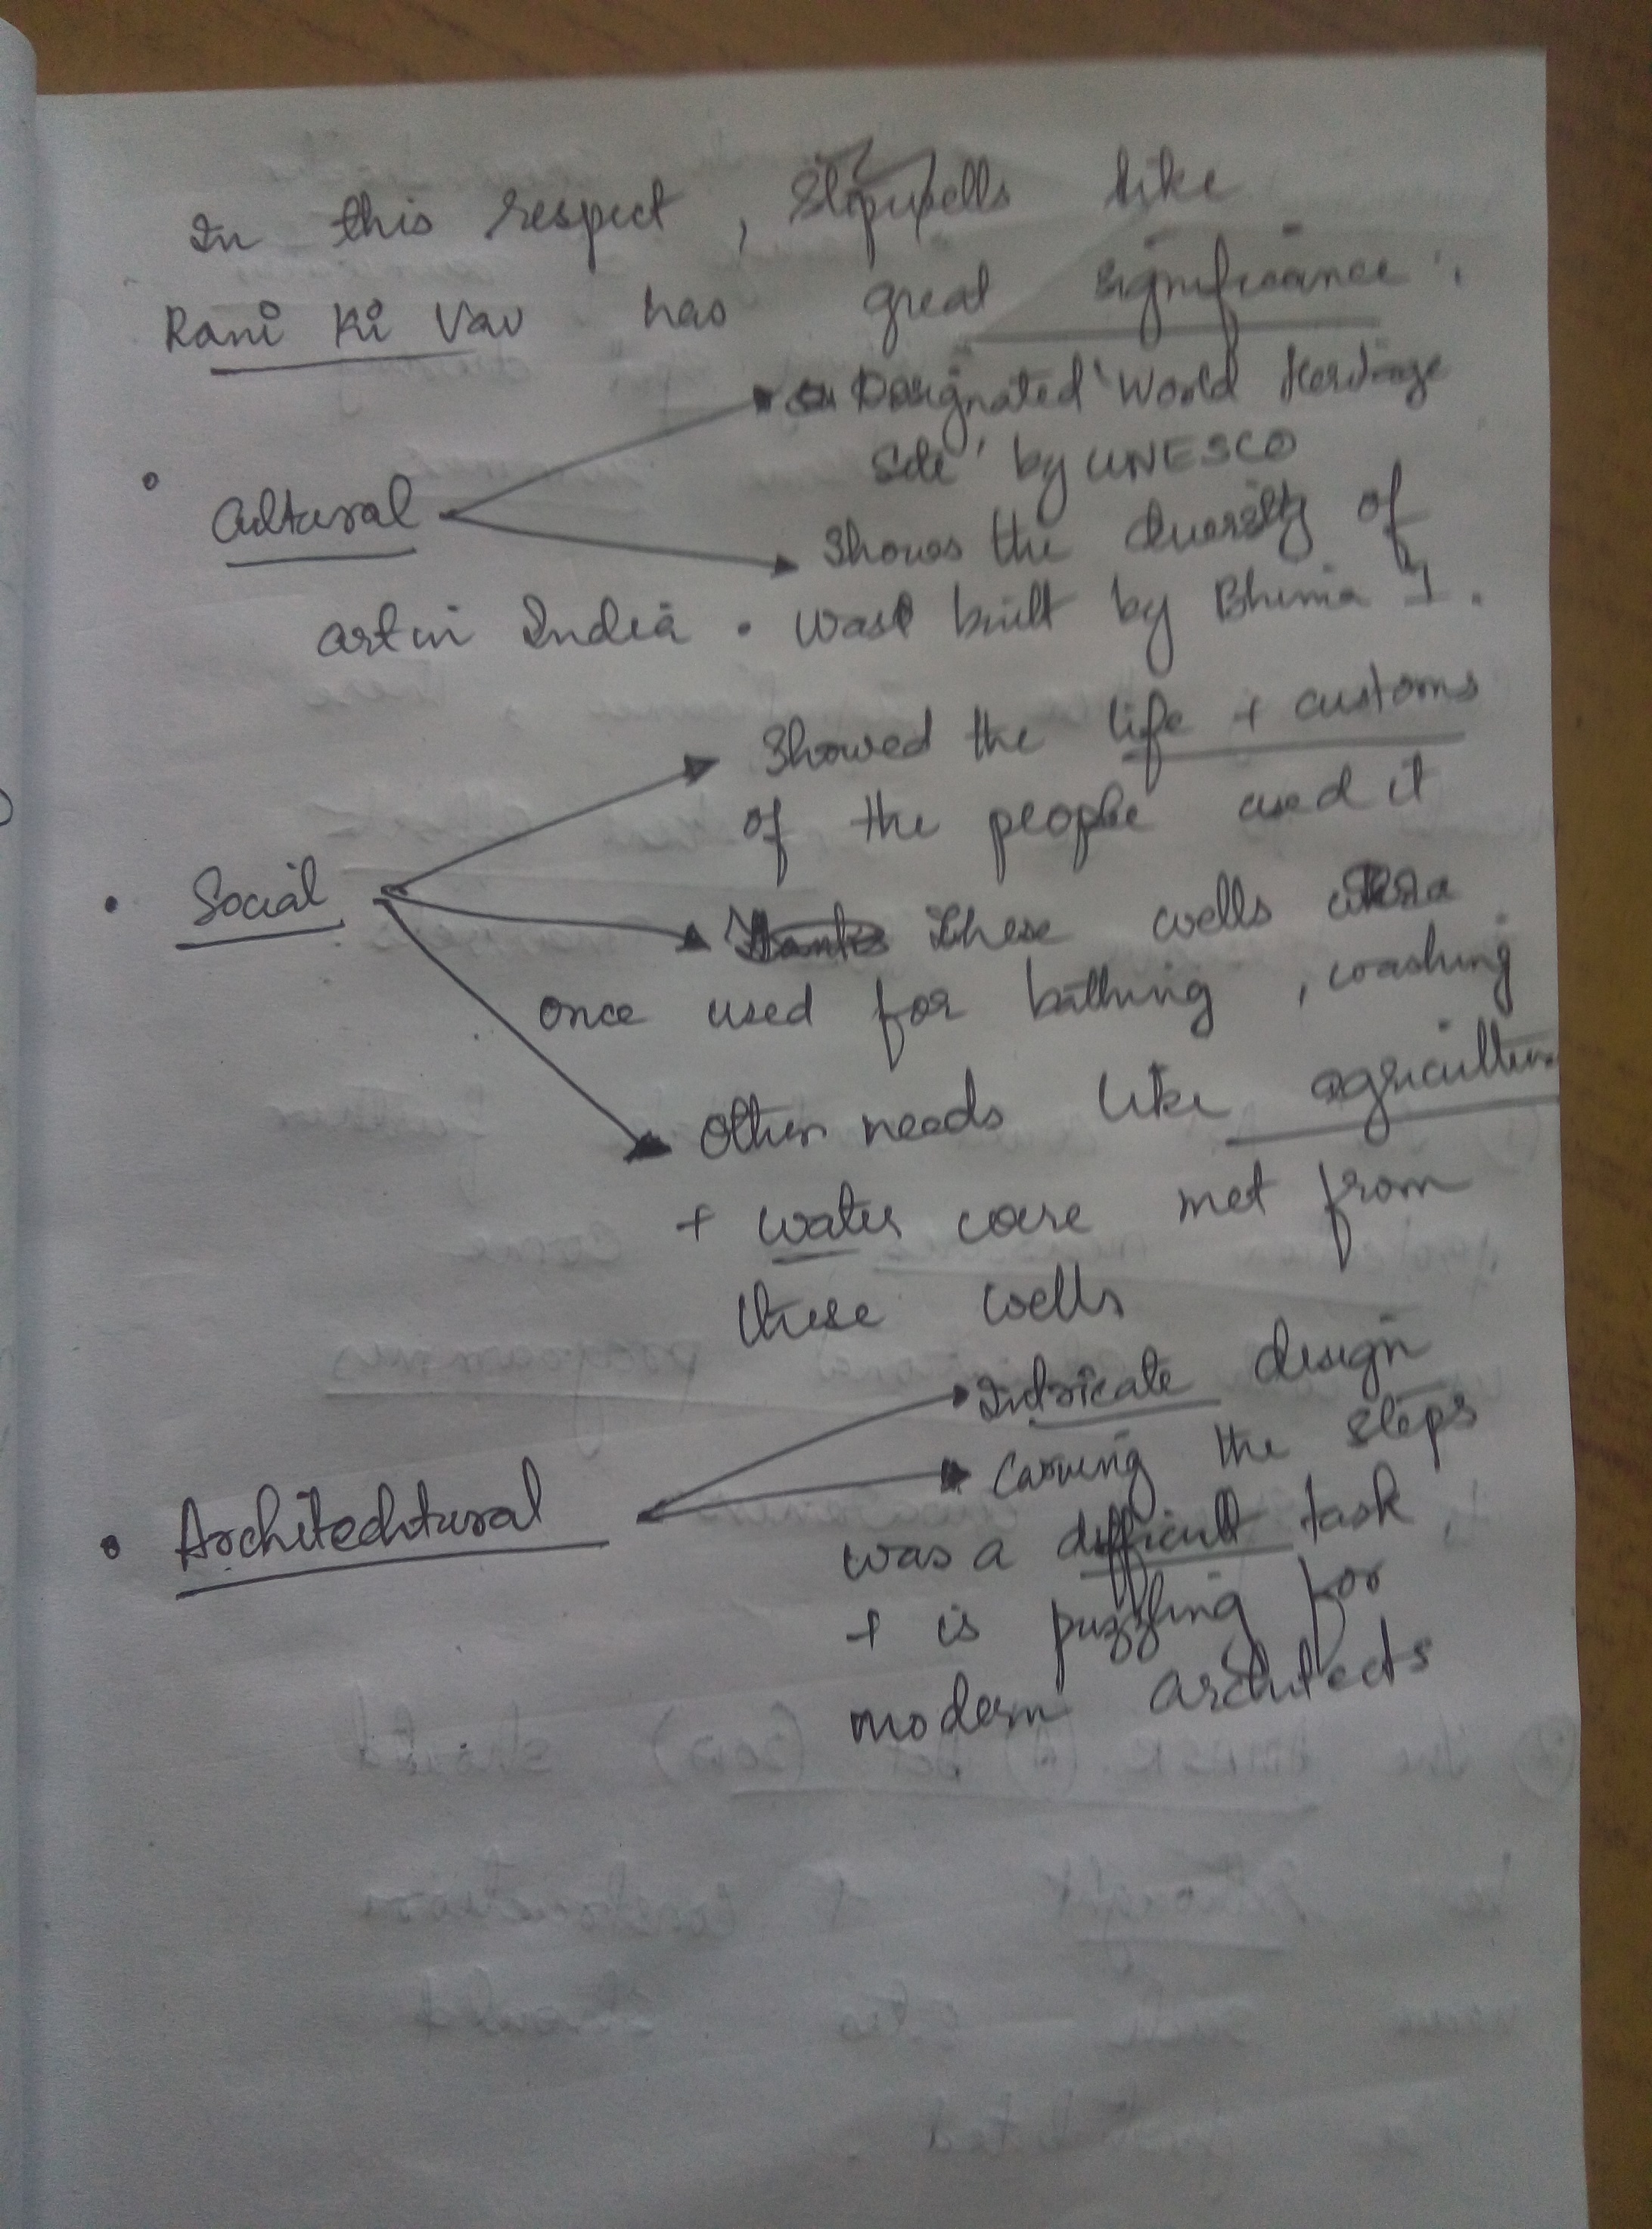 In this respect, Stepwells like
Rani Ki Vav has great significance.
Designated 'World Heritage
Site' by UNESCO
• Cultural
Shows the diversity of
art in India. Was built by Bhima I.
Showed the life + customs
of the people used it
• Social
These wells were
once used for bathing, washing
Other needs like agriculture
+ water were met from
these wells
Intricate design
Carving the steps
• Architechtural
was a difficult task,
+ is puzzling for
modern architects